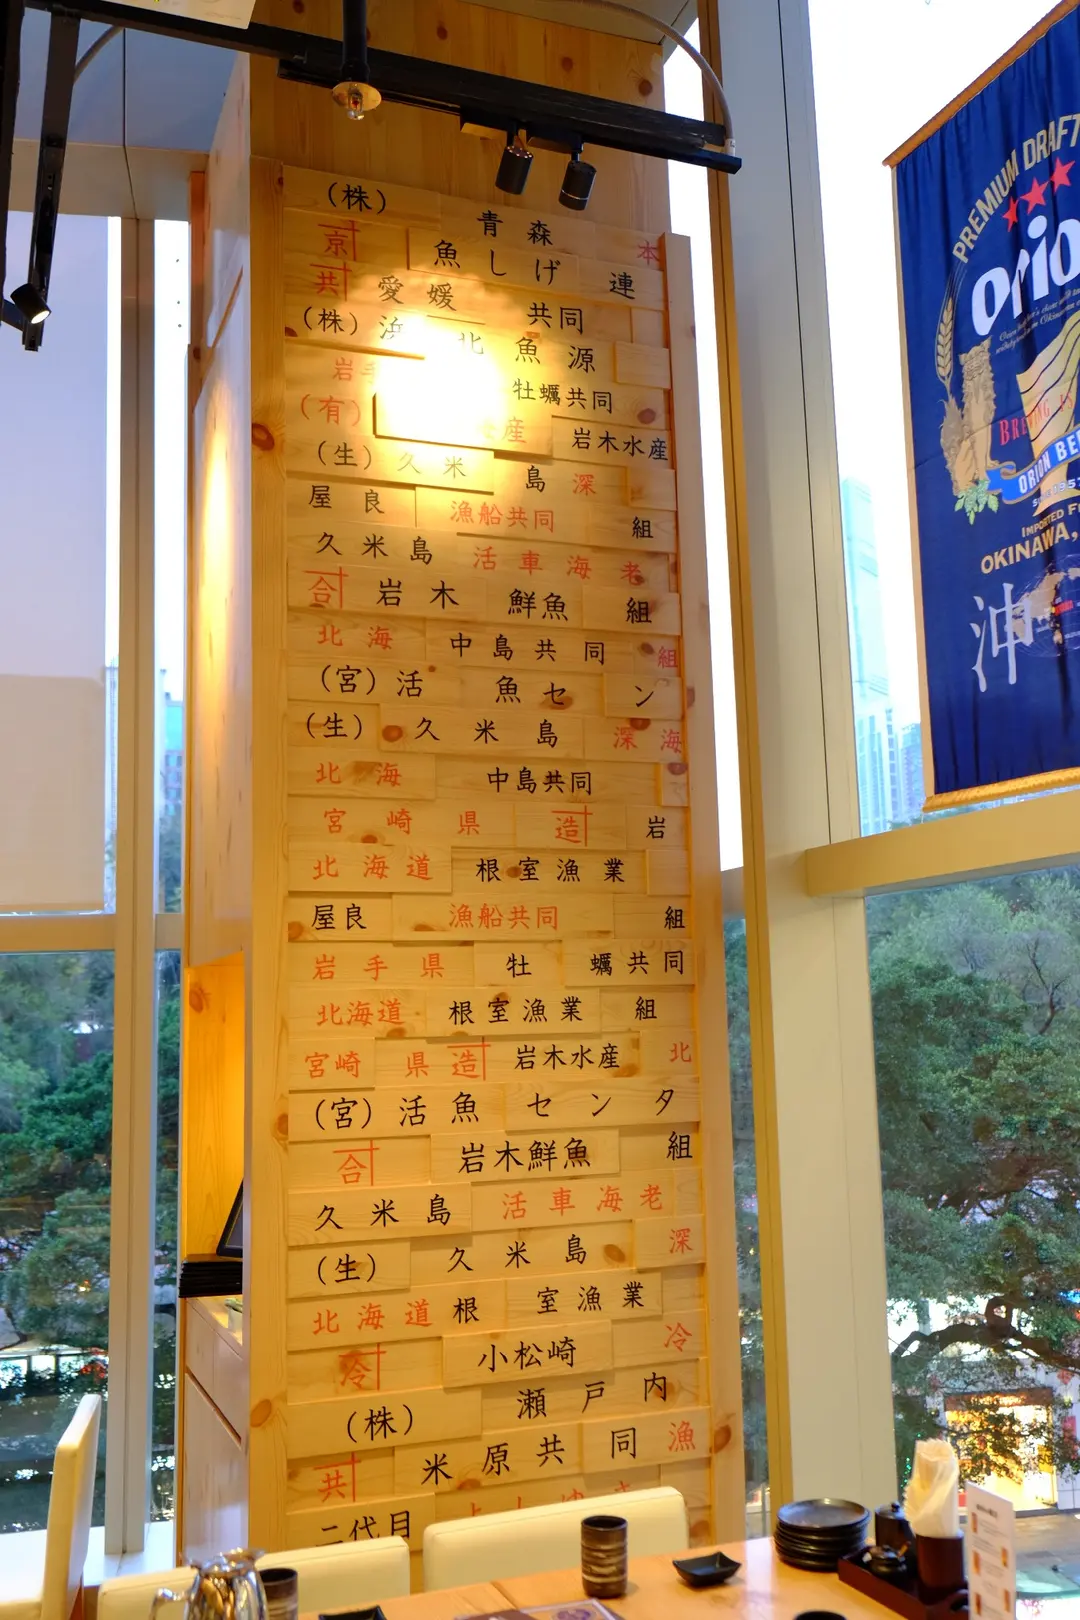 (株) 青森 本
京 魚しげ 連
共 愛媛 共同
(株) 浜 北魚源
岩手 牡蠣共同
(有) 産 岩木水産
(生) 久米島 深
屋良 漁船共同 組
久米島 活車海老
合 岩木 鮮魚 組
北海 中島共同 組
(宮) 活魚セン
(生) 久米島 深海
北海 中島共同
宮崎県 造 岩
北海道 根室漁業
屋良 漁船共同 組
岩手県 牡蠣共同
北海道 根室漁業 組
宮崎県 造 岩木水産 北
(宮) 活魚センタ
合 岩木鮮魚 組
久米島 活車海老
(生) 久米島 深
北海道 根室漁業
冷 小松崎 冷
(株) 瀬戸内
共 米原共同 漁
二代目
PREMIUM DRAFT
Orio
BREWING
ORION BE
IMPORTED
OKINAWA,
沖